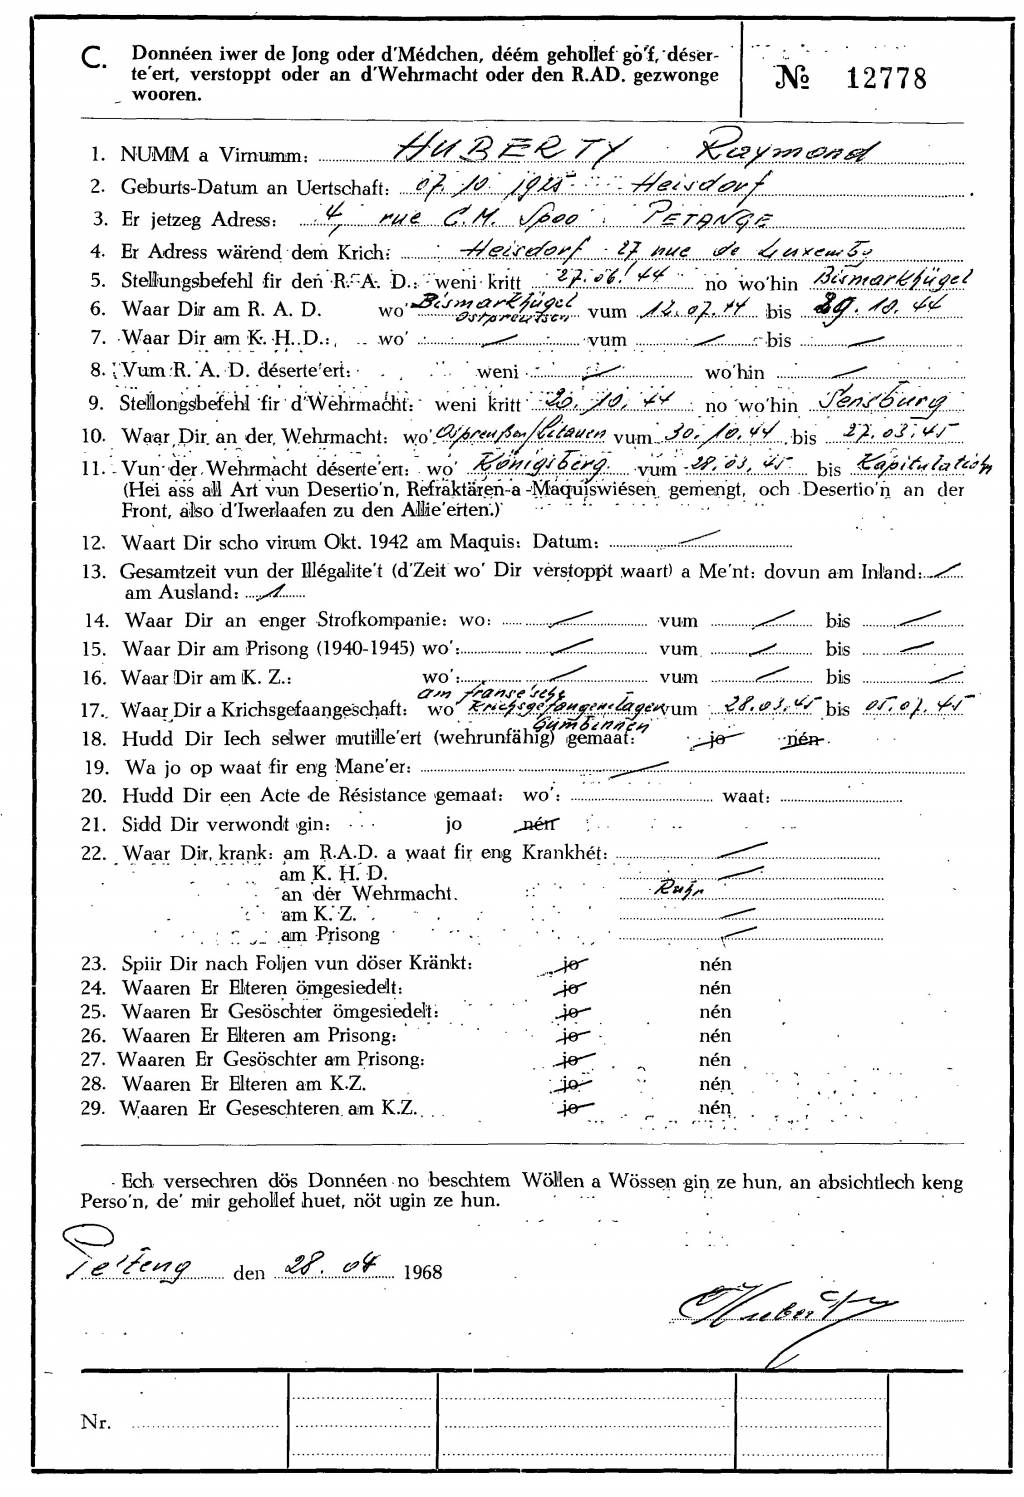 C. Donnéen iwer de Jong oder d'Médchen, déém gehollef go'f, déser-
te'ert, verstoppt oder an d'Wehrmacht oder den R.AD. gezwonge
wooren.
№ 12778
1. NUMM a Virnumm: HUBERTY Raymond
2. Geburts-Datum an Uertschaft: 07.10.1925 Heisdorf
3. Er jetzeg Adress: 4, rue C.M. Spoo: PETANGE
4. Er Adress wärend dem Krich: Heisdorf 27 rue de Luxembg
5. Stellungsbefehl fir den R.A.D.: weni kritt 27.06.44 no wo'hin Bismarkhügel
6. Waar Dir am R. A. D. wo' Bismarkhügel Ostpreutsen vum 12.07.44 bis 29.10.44
7. Waar Dir am K. H. D.: wo' vum bis
8. Vum R. A. D. déserte'ert: weni wo'hin
9. Stellongsbefehl fir d'Wehrmacht: weni kritt 20.10.44 no wo'hin Sensburg
10. Waar Dir an der Wehrmacht: wo' Ostpreußen/Litauen vum 30.10.44 bis 27.03.45
11. Vun der Wehrmacht déserte'ert: wo' Königsberg vum 28.03.45 bis Kapitulation
(Hei ass all Art vun Desertio'n, Refraktären-a-Maquiswiésen gemengt, och Desertio'n an der
Front, also d'Iwerlaafen zu den Allie'erten.)
12. Waart Dir scho virum Okt. 1942 am Maquis: Datum:
13. Gesamtzeit vun der Illégalite't (d'Zeit wo' Dir verstoppt waart) a Me'nt: dovun am Inland:
am Ausland:
14. Waar Dir an enger Strofkompanie: wo: vum bis
15. Waar Dir am Prisong (1940-1945) wo': vum bis
16. Waar Dir am K. Z.: wo': vum bis
am franse'sche
17. Waar Dir a Krichsgefaangeschaft: wo' Krichsgefangenelager vum 28.03.45 bis 05.07.45
Gumbinnen
18. Hudd Dir Iech selwer mutille'ert (wehrunfähig) gemaat: jo nén
19. Wa jo op waat fir eng Mane'er:
20. Hudd Dir een Acte de Résistance gemaat: wo': waat:
21. Sidd Dir verwondt gin: jo nén
22. Waar Dir krank: am R.A.D. a waat fir eng Krankhét:
am K. H. D.
an der Wehrmacht. Ruhr
am K. Z.
am Prisong
23. Spiir Dir nach Foljen vun döser Kränkt: jo nén
24. Waaren Er Elteren ömgesiedelt: jo nén
25. Waaren Er Gesöschter ömgesiedelt: jo nén
26. Waaren Er Elteren am Prisong: jo nén
27. Waaren Er Gesöschter am Prisong: jo nén
28. Waaren Er Elteren am K.Z. jo nén
29. Waaren Er Geseschteren am K.Z. jo nén
Ech versechren dös Donnéen no beschtem Wöllen a Wössen gin ze hun, an absichtlech keng
Perso'n, de' mir gehollef huet, nöt ugin ze hun.
Péiteng den 28.04 1968
Huberty
Nr.